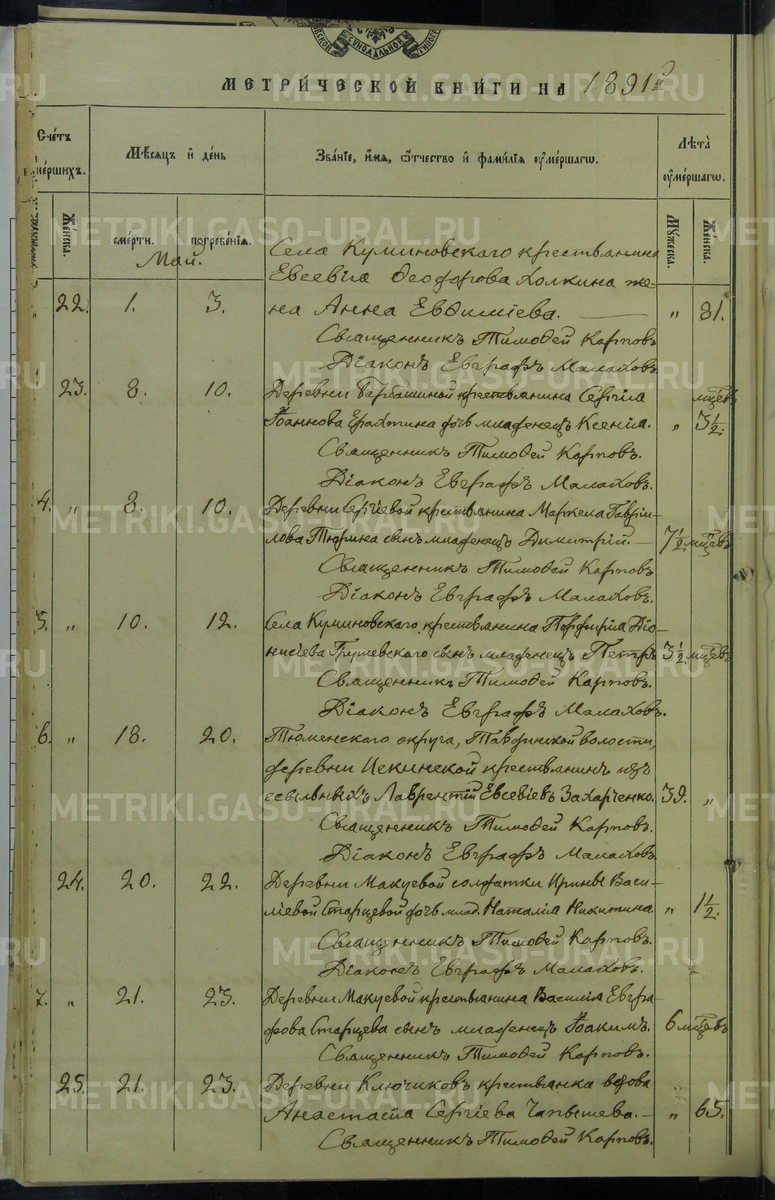 МЕТРИ́ЧЕСКОЙ КНИ́ГИ НА 1891й
Сче́тъ
ме́ршихъ.
Мѣ́сяцъ и҆ де́нь
Зва́нїе, и҆́мя, ѻ҆́тчество и҆ фами́лїя ᲂу҆ме́ршагѡ.
Лѣ́та
ᲂу҆ме́ршагѡ.
Же́нска.
сме́рти.
погребе́нїя.
Му́жеска.
Же́нска.
Май.
Села Куминовскаго крестьянина
Евсевія Ѳеодорова Холкина же-
22. 1. 3. на Анна Евѳиміева. — „ 81.
Священникъ Тимоѳей Карповъ
Діаконъ Евграфъ Малаховъ
23. 8. 10. Деревни крестьянина Сергія мцевъ
Іоаннова дочь младенецъ Ксенія. „ 3½
Священникъ Тимоѳей Карповъ.
Діаконъ Евграфъ Малаховъ.
4. „ 8. 10. Деревни Сергіевой крестьянина Маркела Гаврі-
лова Тюрина сынъ младенецъ Димитрій. — 7½ мцевъ
Священникъ Тимоѳей Карповъ
Діаконъ Евграфъ Малаховъ.
5. „ 10. 12. Села Куминовскаго крестьянина Порфирія Діо-
нисіева сынъ младенецъ Петръ 3½ мцевъ
Священникъ Тимоѳей Карповъ.
Діаконъ Евграфъ Малаховъ.
6. „ 18. 20. Тюменскаго округа, Тавдинской волости,
деревни Искинской крестьянинъ изъ
ссыльныхъ Лаврентій Евсевіевъ Захарченко. 39. „
Священникъ Тимоѳей Карповъ.
Діаконъ Евграфъ Малаховъ
24. 20. 22. Деревни Макуевой солдатки Ирины Васи-
ліевой Старцевой дочь млад. Наталія Никитина. „ 1½.
Священникъ Тимоѳей Карповъ.
Діаконъ Евграфъ Малаховъ.
7. „ 21. 23. Деревни Макуевой крестьянина Василія Евгра-
фова Старцева сынъ младенецъ Іоакимъ. 6 мцевъ
Священникъ Тимоѳей Карповъ.
25. 21. 23. Деревни Ключиковъ крестьянка вдова
Анастасія Сергіева Чапышева. — „ 65.
Священникъ Тимоѳей Карповъ.
METRIKI.GASO-URAL.RU